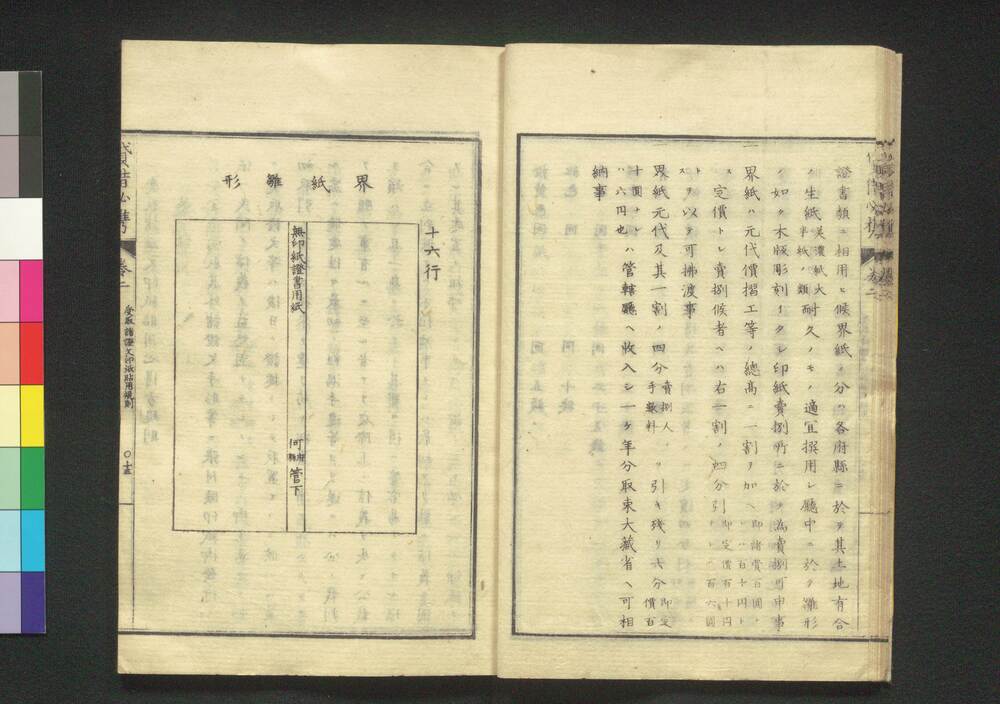 證書類ニ相用ヒ候界紙ノ分ハ各府縣ニ於テ其土地有合
ノ生紙美濃紙大半紙ノ類耐久ノモノ適宜撰用シ廳中ニ於テ雛形
ノ如ク木版彫刻イタシ印紙賣捌所ニ於テ為賣捌可申事
界紙ハ元代價摺工等ノ總高ニ一割ヲ加ヘ即諸費百圓ナレハ百十圓ト
ス定價トシ賣捌候者ヘハ右一割ノ四分引即定價百十圓ナレハ百六圓
トスヲ以テ可拂渡事
界紙元代及其一割ノ四分賣捌人手數料ヲ引キ残リ六分即定價百
十圓ナレハ六円也ハ管轄廳ヘ收入シ一ケ年分取束大藏省ヘ可相
納事
界紙雛形
十六行
無印紙證書用紙
何府縣管下
貸借必携
卷二
受取諸證文印紙貼用規則